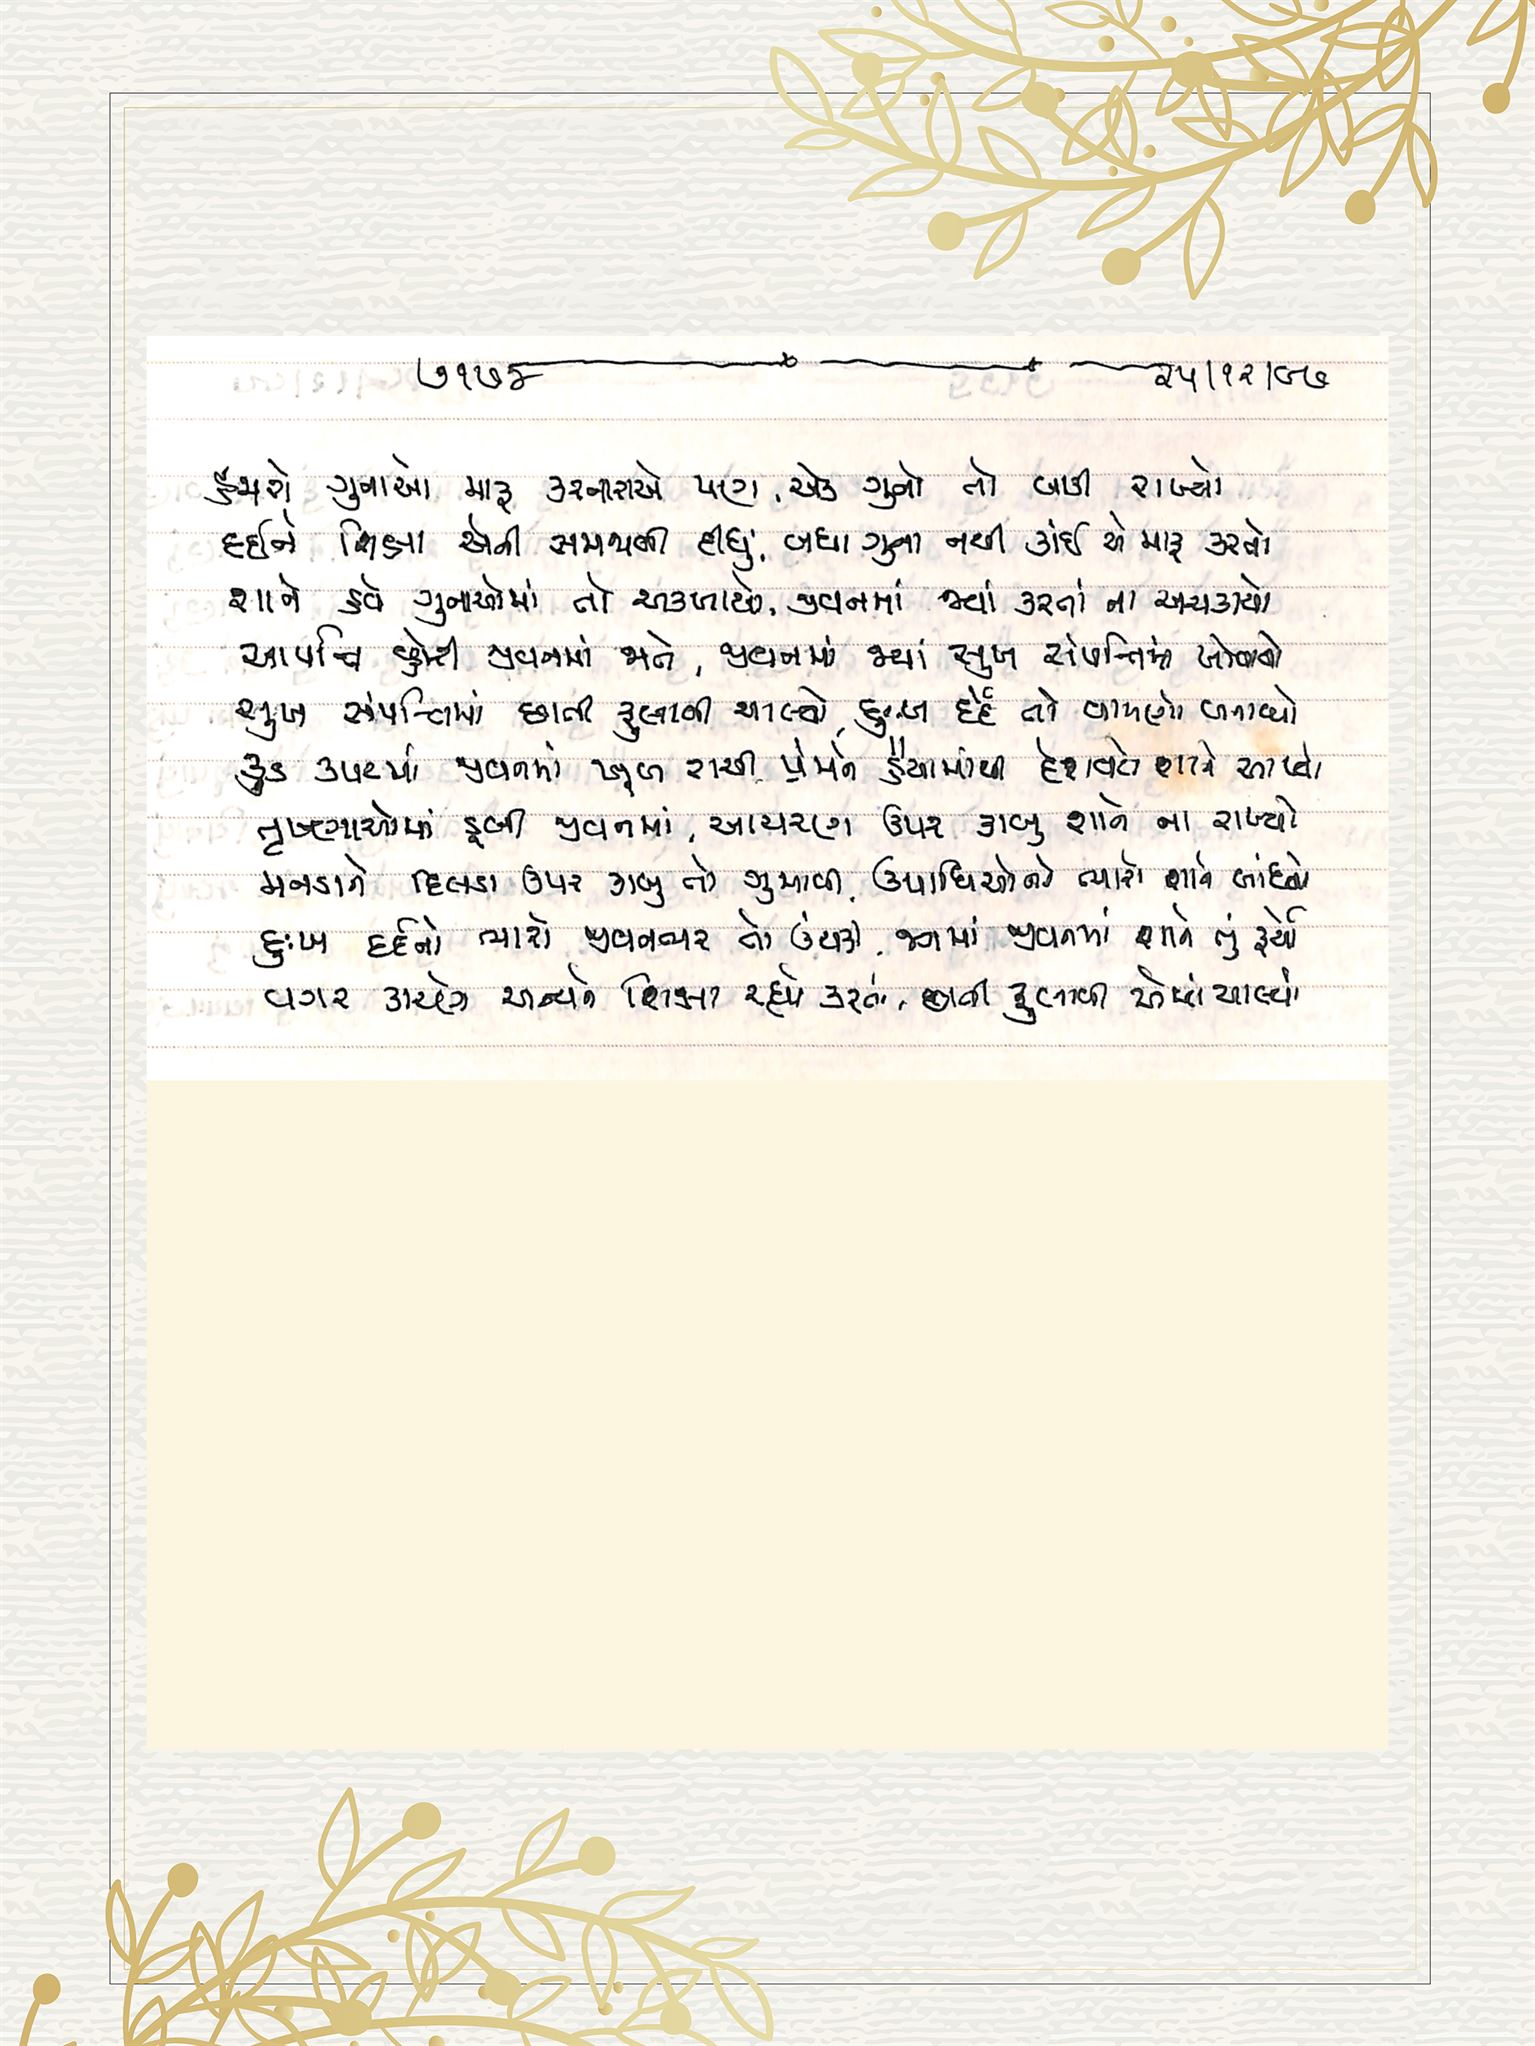 ૭૧૭૬ ૨૫/૧૨/૯૭
હજારો ગુનાઓ માફ કરનારાએ પણ, એક ગુનો તો બાકી રાખ્યો
દર્દને શિક્ષા એની સમજી લીધું, બધા ગુના નથી કાંઈ એ માફ કરતો
શાને હવે ગુનાઓમાં તો અકળાયો, જીવનમાં જ્યાં કરતાં ના અચકાયો
આપત્તિ છોડી જીવનમાં જાતે, જીવનમાં જ્યાં સુખ સંપત્તિમાં ખોવાયો
સુખ સંપત્તિમાં છાતી ફુલાવી ચાલ્યો, દુઃખ દર્દે તો વામણો બનાવ્યો
કુડ કપટમાં જીવનમાં ખૂબ રાચી, પ્રેમને હૈયામાંથી દેશવટો શાને આપ્યો
તૃષ્ણાઓમાં ડૂબી જીવનમાં, આચરણ ઉપર કાબુ શાને ના રાખ્યો
મનડાને દિલડા ઉપર કાબુ તો ગુમાવી, ઉપાધિઓનો ભારો શાને બાંધ્યો
દુઃખ દર્દનો ભારો જીવનભર તો ઉંચકી, જગમાં જીવનમાં શાને તું ફર્યો
વગર કારણે અન્યને શિક્ષા રહ્યો કરતો, છાતી ફુલાવી એમાં ચાલ્યો